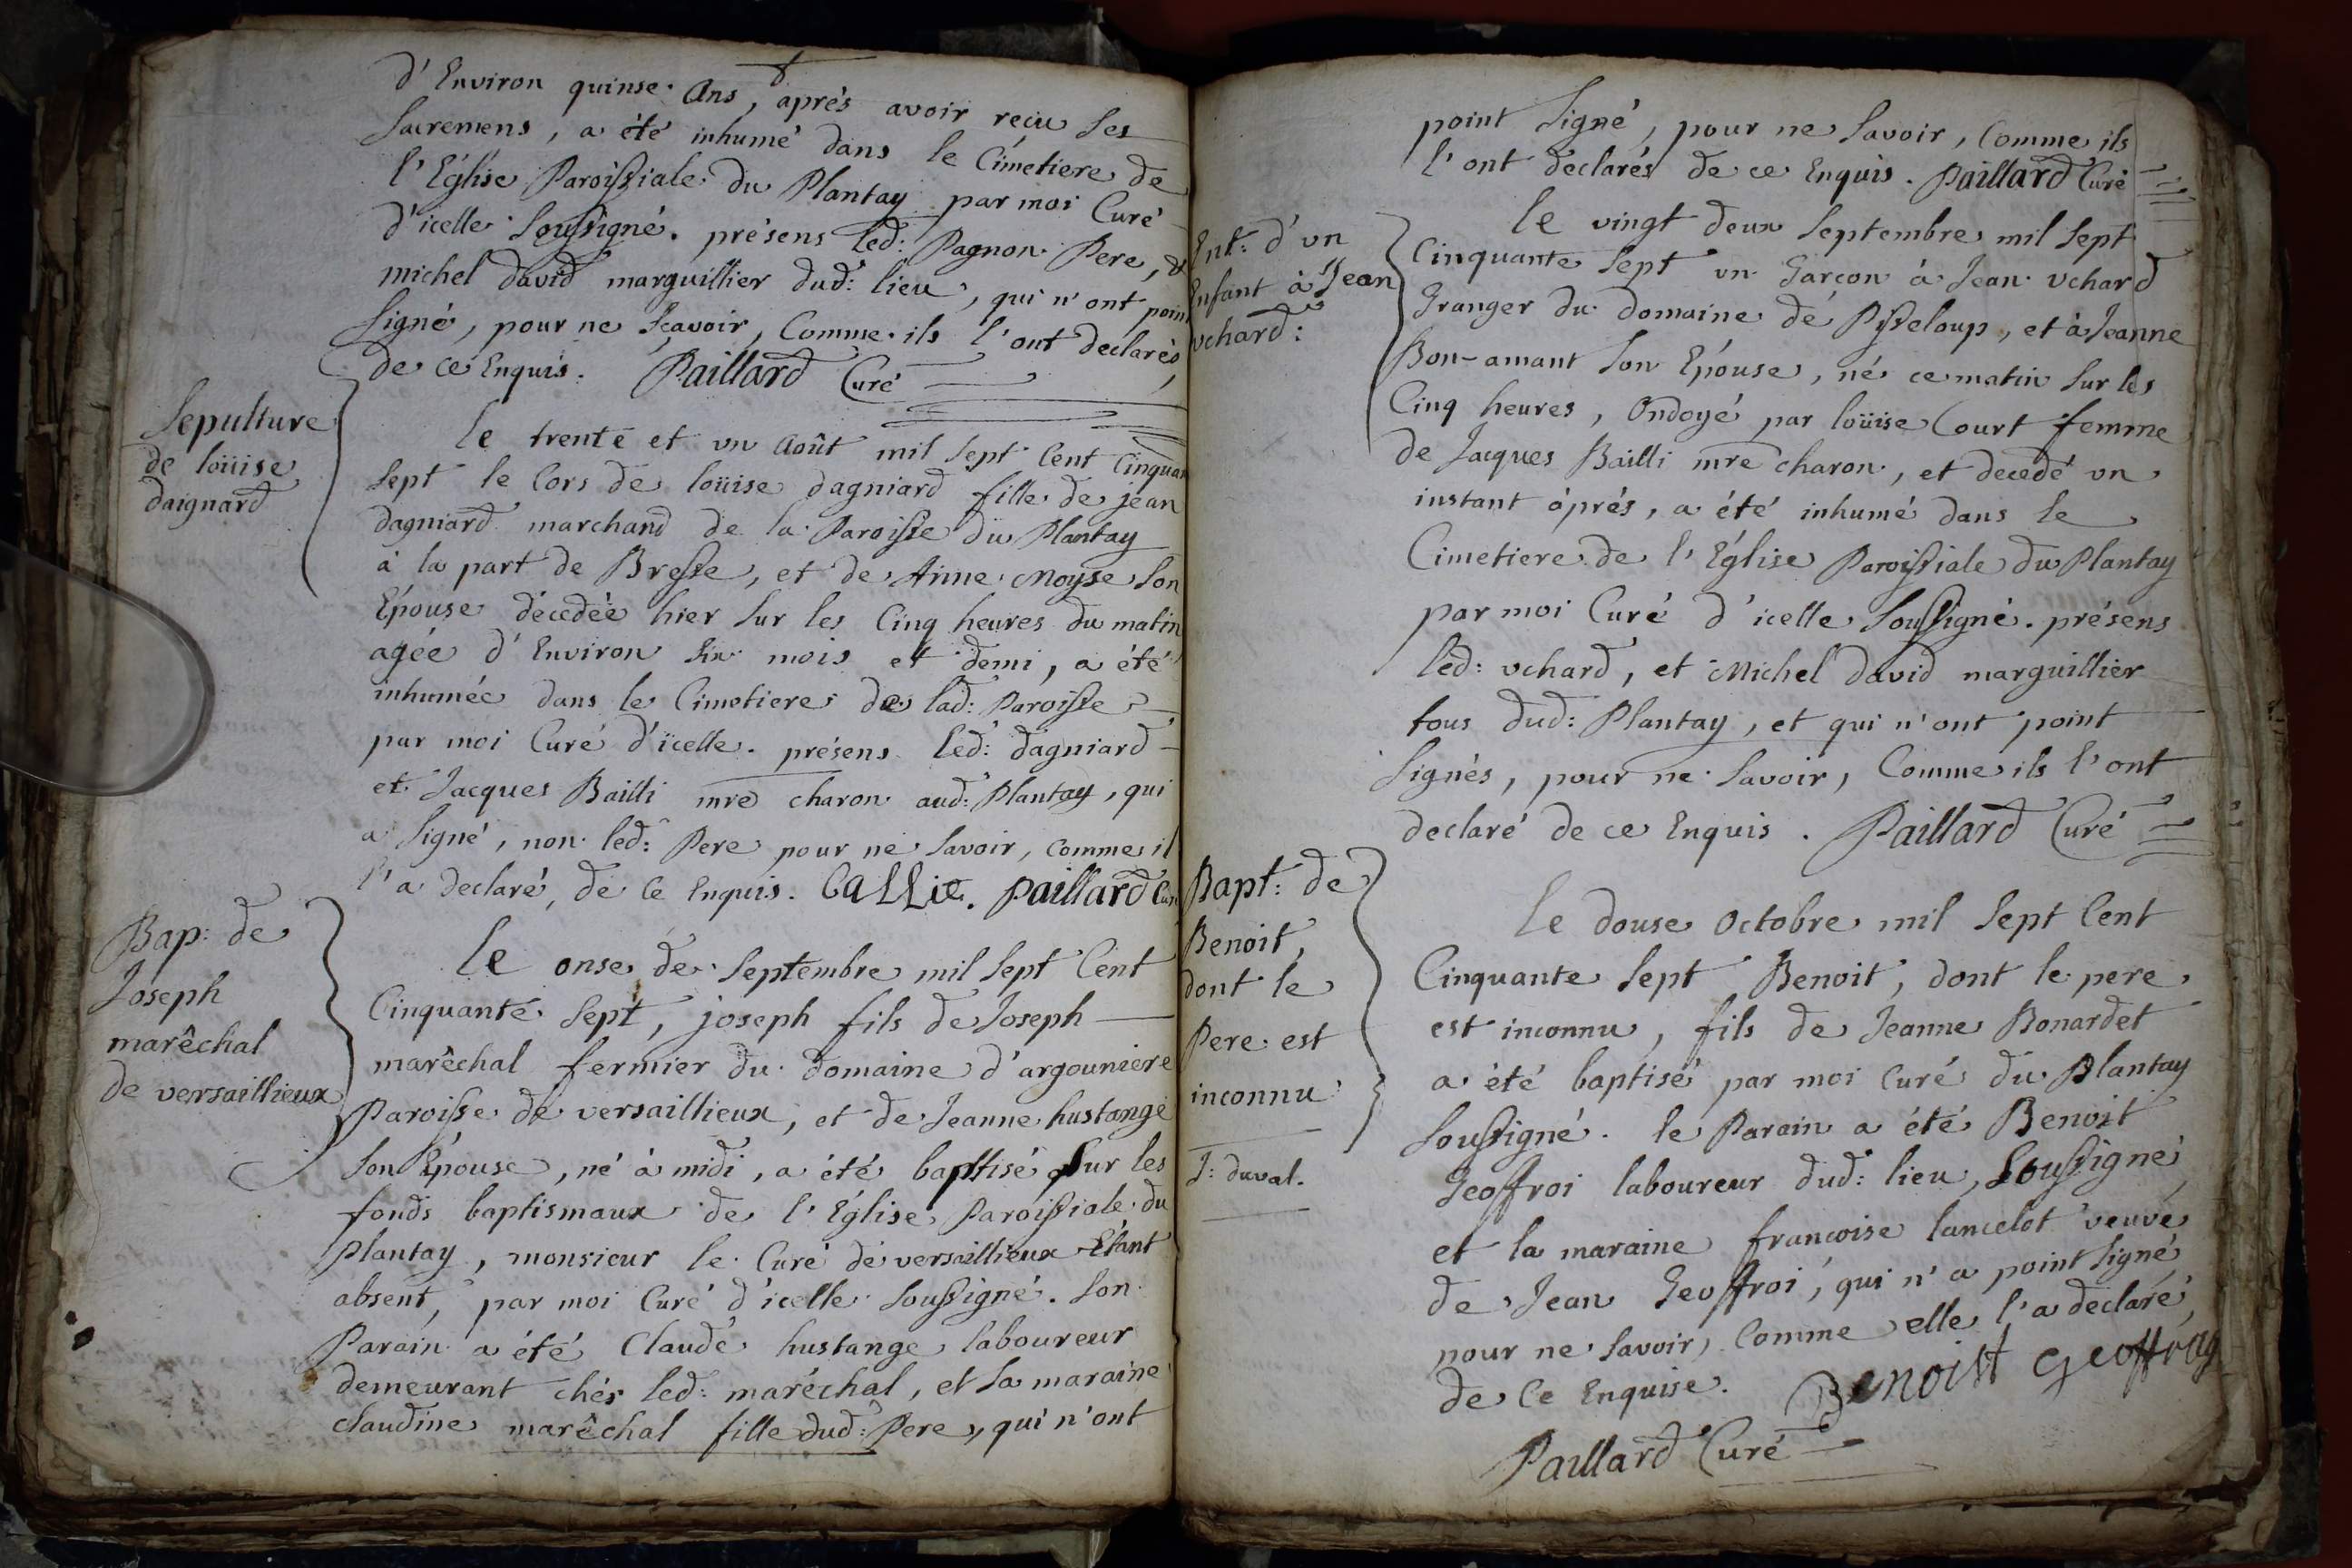 d'Environ quinse Ans, aprés avoir reçu ses
Sacremens, a été inhumé dans le Cimetiere de
l'Eglise Paroissiale du Plantay par moi Curé
d'icelle Soussigné. présens led: Pagnon Pere, &
michel david marguillier dud: lieu, qui n'ont point
Signé, pour ne Sçavoir, Comme ils l'ont declarés,
de ce Enquis. Paillard Curé
Sepulture
de loüise
daignard
le trente et un Août mil Sept Cent Cinquan
Sept le Cors de loüise dagniard fille de jean
dagniard marchand de la Paroisse du Plantay
à la part de Bresse, et de Anne Moyse Son
Epouse décedée hier Sur les Cinq heures du matin
agée d'Environ Six mois et demi, a été
inhumée dans le Cimetiere de lad: Paroisse
par moi Curé d'icelle. présens led: dagniard
et Jacques Bailli mre charon aud: Plantay, qui
a Signé, non led: Pere pour ne Savoir, comme il
l'a declaré, de Ce Enquis. Paillard Cur
Bap: de
Joseph
marêchal
de versaillieux
Le onse de Septembre mil Sept Cent
Cinquante Sept, joseph fils de Joseph
marêchal fermier du domaine d'argouniere
Paroisse de versaillieux, et de Jeanne hustange
Son Epouse, né à midi, a été baptisé Sur les
fonds baptismaux de l'Eglise Paroissiale du
Plantay, monsieur le Curé de versaillieux Etant
absent, par moi Curé d'icelle Soussigné. Son
Parain a été Claude hustange laboureur
demeurant chés led: maréchal, et la maraine
claudine marêchal fille dud: Pere, qui n'ont
point Signé, pour ne Savoir, Comme ils
l'ont declarés de ce Enquis. Paillard Curé
Ent: d'un
Enfant à Jean
vchard:
le vingt deux Septembre mil Sept
Cinquante Sept un Garçon à Jean vchard
Granger du domaine de Pisseloup, et à Jeanne
Bon-amant Son Epouse, né ce matin Sur les
Cinq heures, Ondoyé par loüise Court femme
de Jacques Bailli mre charon, et decedé un
instant àprés, a été inhumé dans le
Cimetiere de l'Eglise Paroissiale du Plantay
par moi Curé d'icelle Soussigné. présens
led: vchard, et Michel david marguillier
tous dud: Plantay, et qui n'ont point
Signés, pour ne Savoir, Comme ils l'ont
declaré de ce Enquis. Paillard Curé
Bapt: de
Benoit,
dont le
Pere est
inconnu
J: duval.
Le douse Octobre mil Sept Cent
Cinquante Sept Benoit, dont le pere
est inconnu, fils de Jeanne Bonardet
a été baptisé par moi Curé du Plantay
Soussigné. le Parain a été Benoit
Geoffroi laboureur dud: lieu, Soussigné,
et la maraine francoise lancelot veuve
de Jean Geoffroi, qui n'a point Signé,
pour ne Savoir, Comme elle l'a declaré,
de Ce Enquise. Benoist Geoffray
Paillard Curé